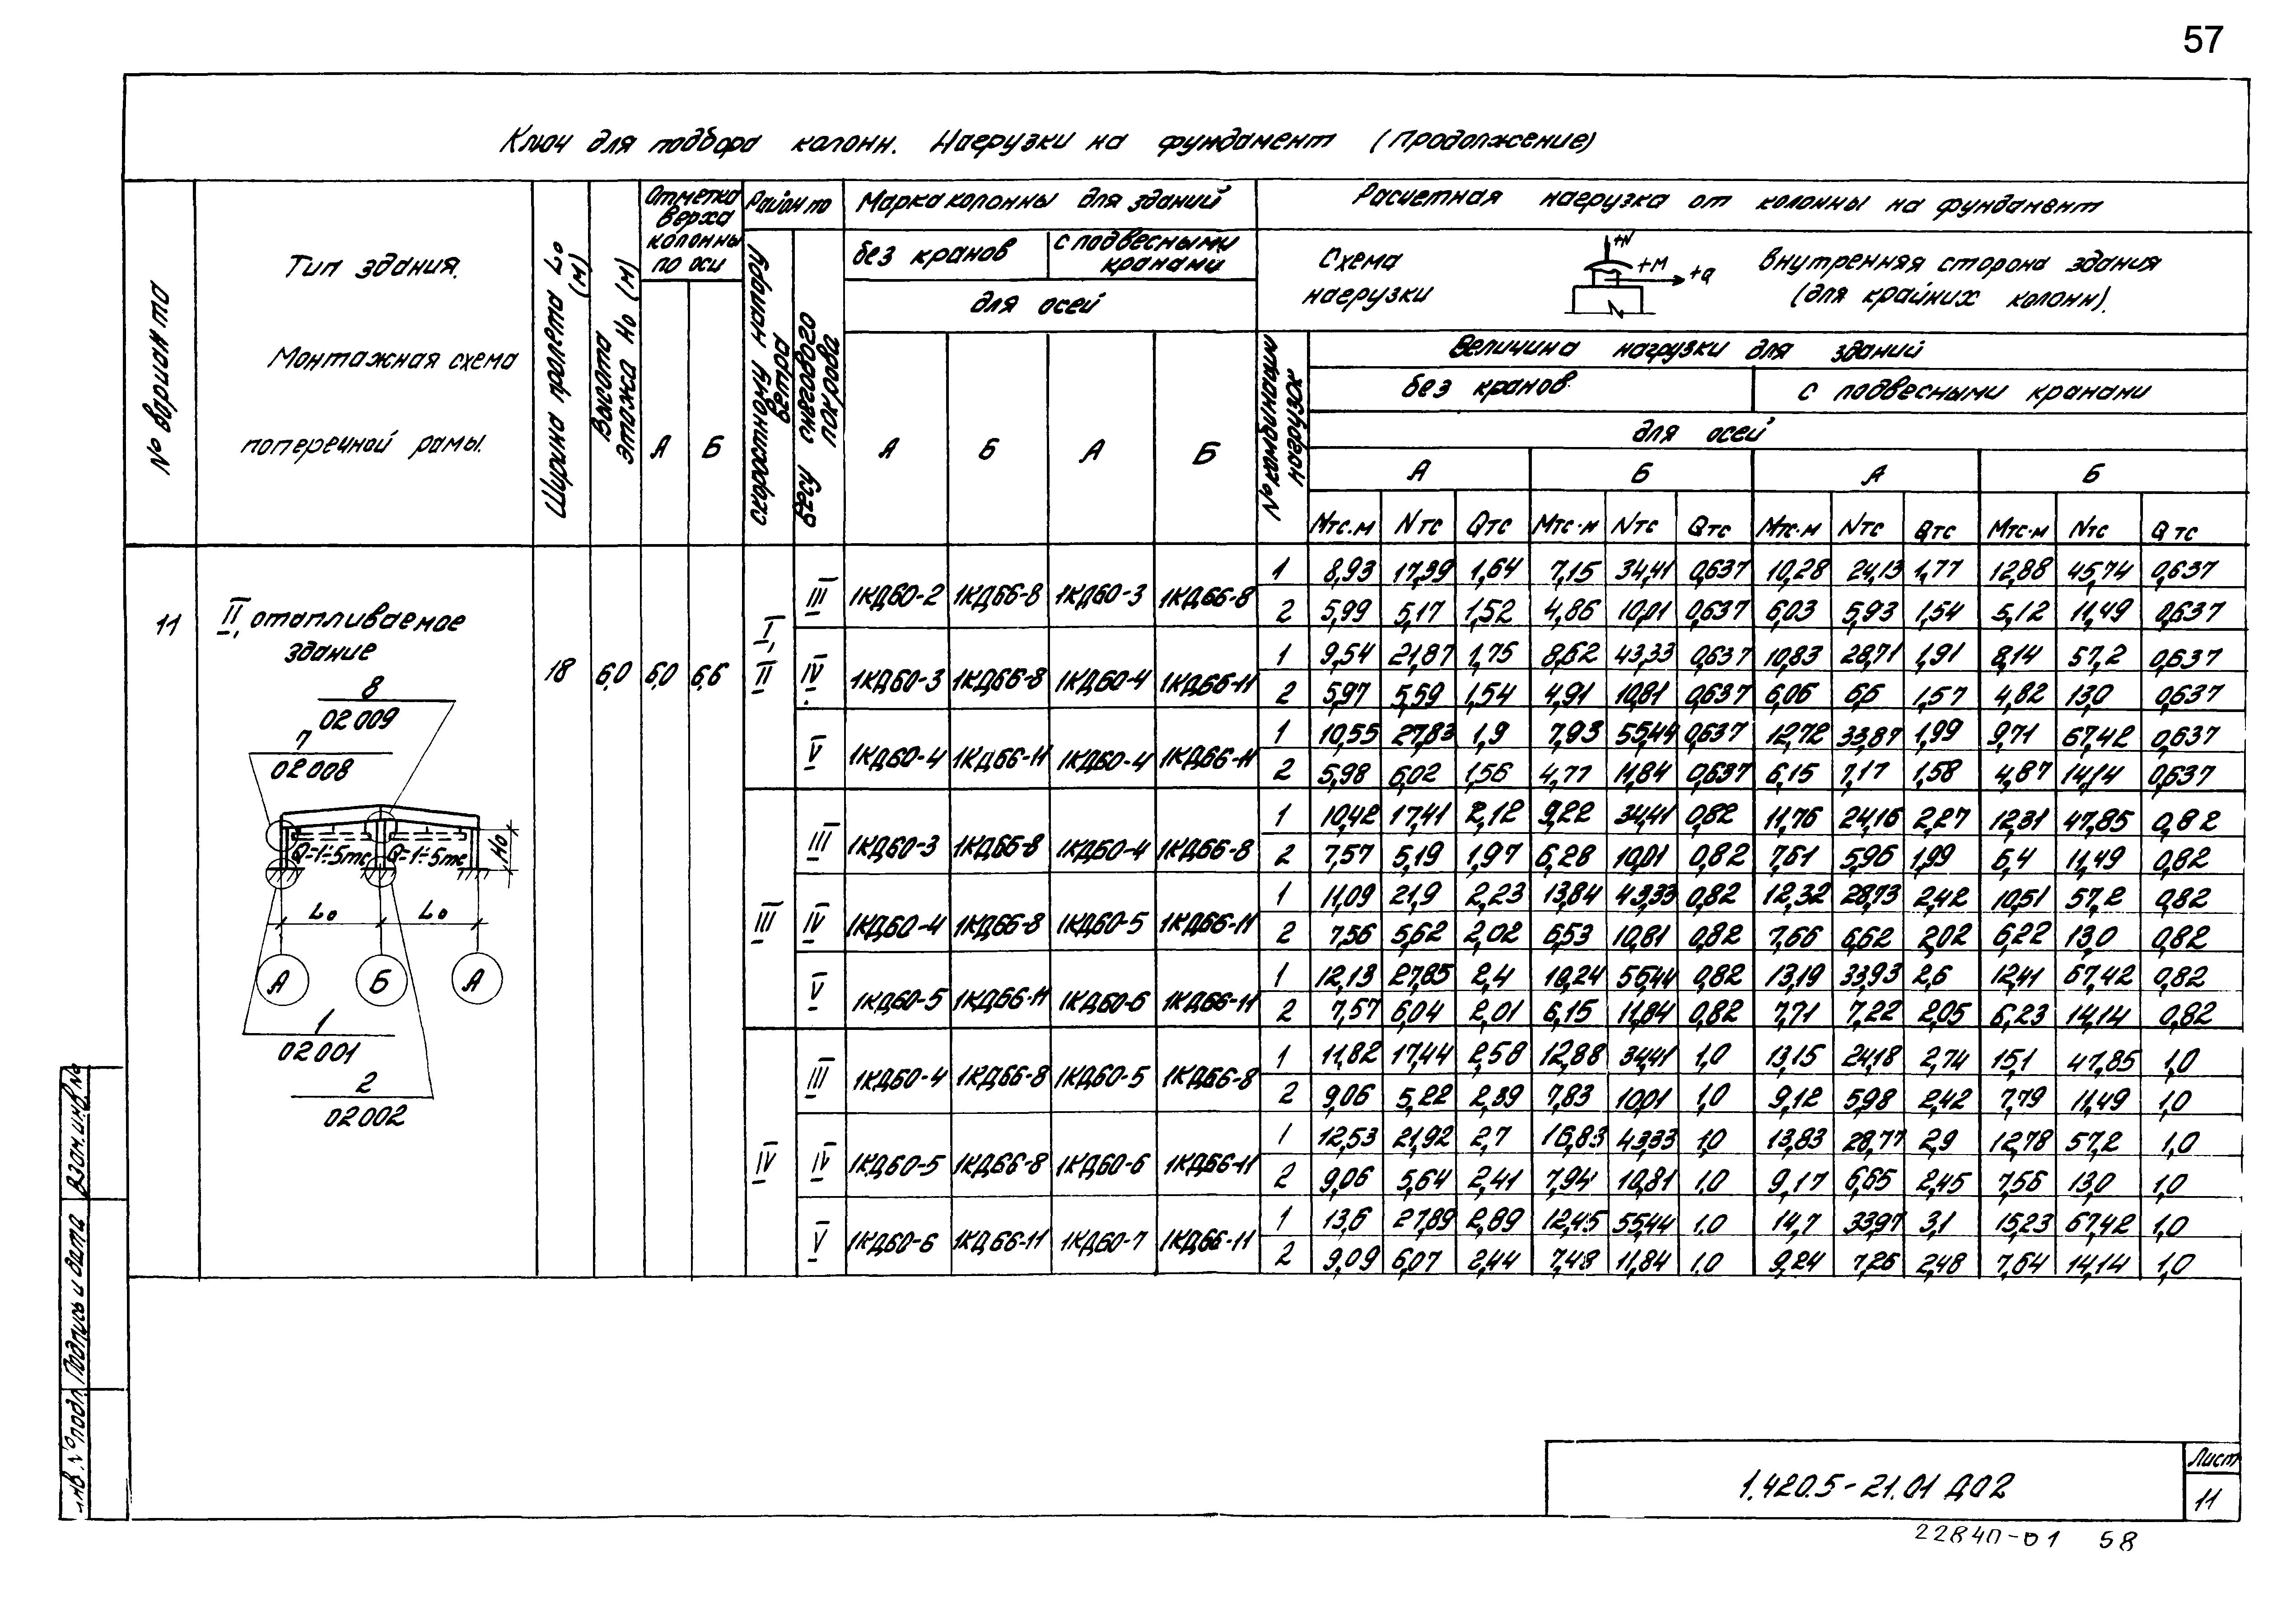 57
Ключ для подбора колонн. Нагрузки на фундамент (Продолжение)
№ варианта
Тип здания.
Монтажная схема
поперечной рамы.
Ширина пролета L₀ (м)
Высота этажа H₀ (м)
Отметка верха колонны по оси
А Б
Район по
скоростному напору ветра
весу снегового покрова
Марка колонны для зданий
без кранов с подвесными кранами
для осей
А Б А Б
Расчетная нагрузка от колонны на фундамент
Схема нагрузки
+N +M +Q
Внутренняя сторона здания (для крайних колонн).
№ комбинации нагрузок
Величина нагрузки для зданий
без кранов с подвесными кранами
для осей
А Б А Б
Мтс.м Nтс Qтс Мтс.м Nтс Qтс Мтс.м Nтс Qтс Мтс.м Nтс Qтс
11
II, отапливаемое
здание
8
02009
7
02008
Q=1÷5тс Q=1÷5тс
H₀
L₀ L₀
А Б А
1
02001
2
02002
18 6,0 6,0 6,6
I, II
III 1КД60-2 1КД66-8 1КД60-3 1КД66-8
1 8,93 17,39 1,64 7,15 34,41 0,637 10,28 24,13 1,77 12,88 45,74 0,637
2 5,99 5,17 1,52 4,86 10,01 0,637 6,03 5,93 1,54 5,12 11,49 0,637
IV 1КД60-3 1КД66-8 1КД60-4 1КД66-11
1 9,54 21,87 1,75 8,62 43,33 0,637 10,83 28,71 1,91 8,14 57,2 0,637
2 5,97 5,59 1,54 4,91 10,81 0,637 6,06 6,6 1,57 4,82 13,0 0,637
V 1КД60-4 1КД66-11 1КД60-4 1КД66-11
1 10,55 27,83 1,9 7,93 55,44 0,637 12,72 33,87 1,99 9,71 67,42 0,637
2 5,98 6,02 1,56 4,77 11,84 0,637 6,15 7,17 1,58 4,87 14,14 0,637
III
III 1КД60-3 1КД66-8 1КД60-4 1КД66-8
1 10,42 17,41 2,12 9,22 34,41 0,82 11,76 24,16 2,27 12,31 47,85 0,82
2 7,57 5,19 1,97 6,28 10,01 0,82 7,61 5,96 1,99 6,4 11,49 0,82
IV 1КД60-4 1КД66-8 1КД60-5 1КД66-11
1 11,09 21,9 2,23 13,84 43,33 0,82 12,32 28,73 2,42 10,51 57,2 0,82
2 7,56 5,62 2,02 6,53 10,81 0,82 7,66 6,62 2,02 6,22 13,0 0,82
V 1КД60-5 1КД66-11 1КД60-6 1КД66-11
1 12,13 27,85 2,4 10,24 55,44 0,82 13,19 33,93 2,6 12,41 67,42 0,82
2 7,57 6,04 2,01 6,15 11,84 0,82 7,71 7,22 2,05 6,23 14,14 0,82
IV
III 1КД60-4 1КД66-8 1КД60-5 1КД66-8
1 11,82 17,44 2,58 12,88 34,41 1,0 13,15 24,18 2,74 15,1 47,85 1,0
2 9,06 5,22 2,39 7,83 10,01 1,0 9,12 5,98 2,42 7,79 11,49 1,0
IV 1КД60-5 1КД66-8 1КД60-6 1КД66-11
1 12,53 21,92 2,7 16,83 43,33 1,0 13,83 28,77 2,9 12,78 57,2 1,0
2 9,06 5,64 2,41 7,94 10,81 1,0 9,17 6,65 2,45 7,56 13,0 1,0
V 1КД60-6 1КД66-11 1КД60-7 1КД66-11
1 13,6 27,89 2,89 12,45 55,44 1.0 14,7 33,97 3,1 15,23 67,42 1,0
2 9,09 6,07 2,44 7,48 11,84 1.0 9,24 7,26 2,48 7,64 14,14 1,0
Взам.инв.№
Подпись и дата
Инв.№ подл.
1.420.5-21.01 Д02
Лист
11
22840-01 58